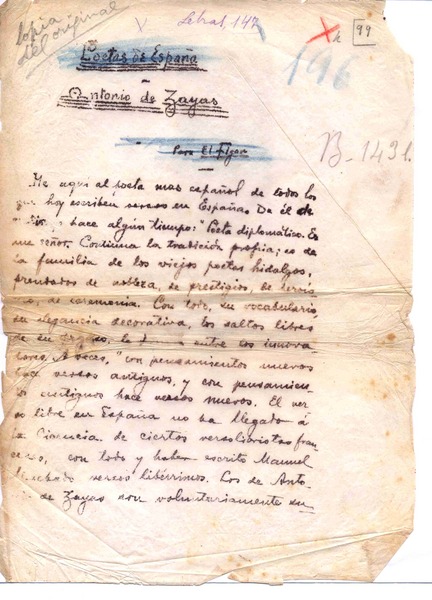 Copia
del original
Letras, 147
x k 99
196
Poetas de España
Antonio de Zayas
Para El Fígaro
B-1431.
He aquí al poeta mas español de todos los
que hoy escriben versos en España. De él
hace algún tiempo: "Poeta diplomático. Es
une señor. Continua la tradición propia; es de
la familia de los viejos poetas hidalgos,
prendados de nobleza, de prestigios, de
de ceremonia. Con todo, su vocabulario
su elegancia decorativa, los saltos libres
de su entre los innova
A veces, "con pensamientos nuevos
hace versos antiguos, y con pensamien
antiguos hace versos nuevos. El ver
so libre en España no ha llegado á
la licencia de ciertos versolibristas fran
ceses, con todo y haber escrito Manuel
Machado versos libérrimos. Los de Anto
de Zayas son voluntariamente su